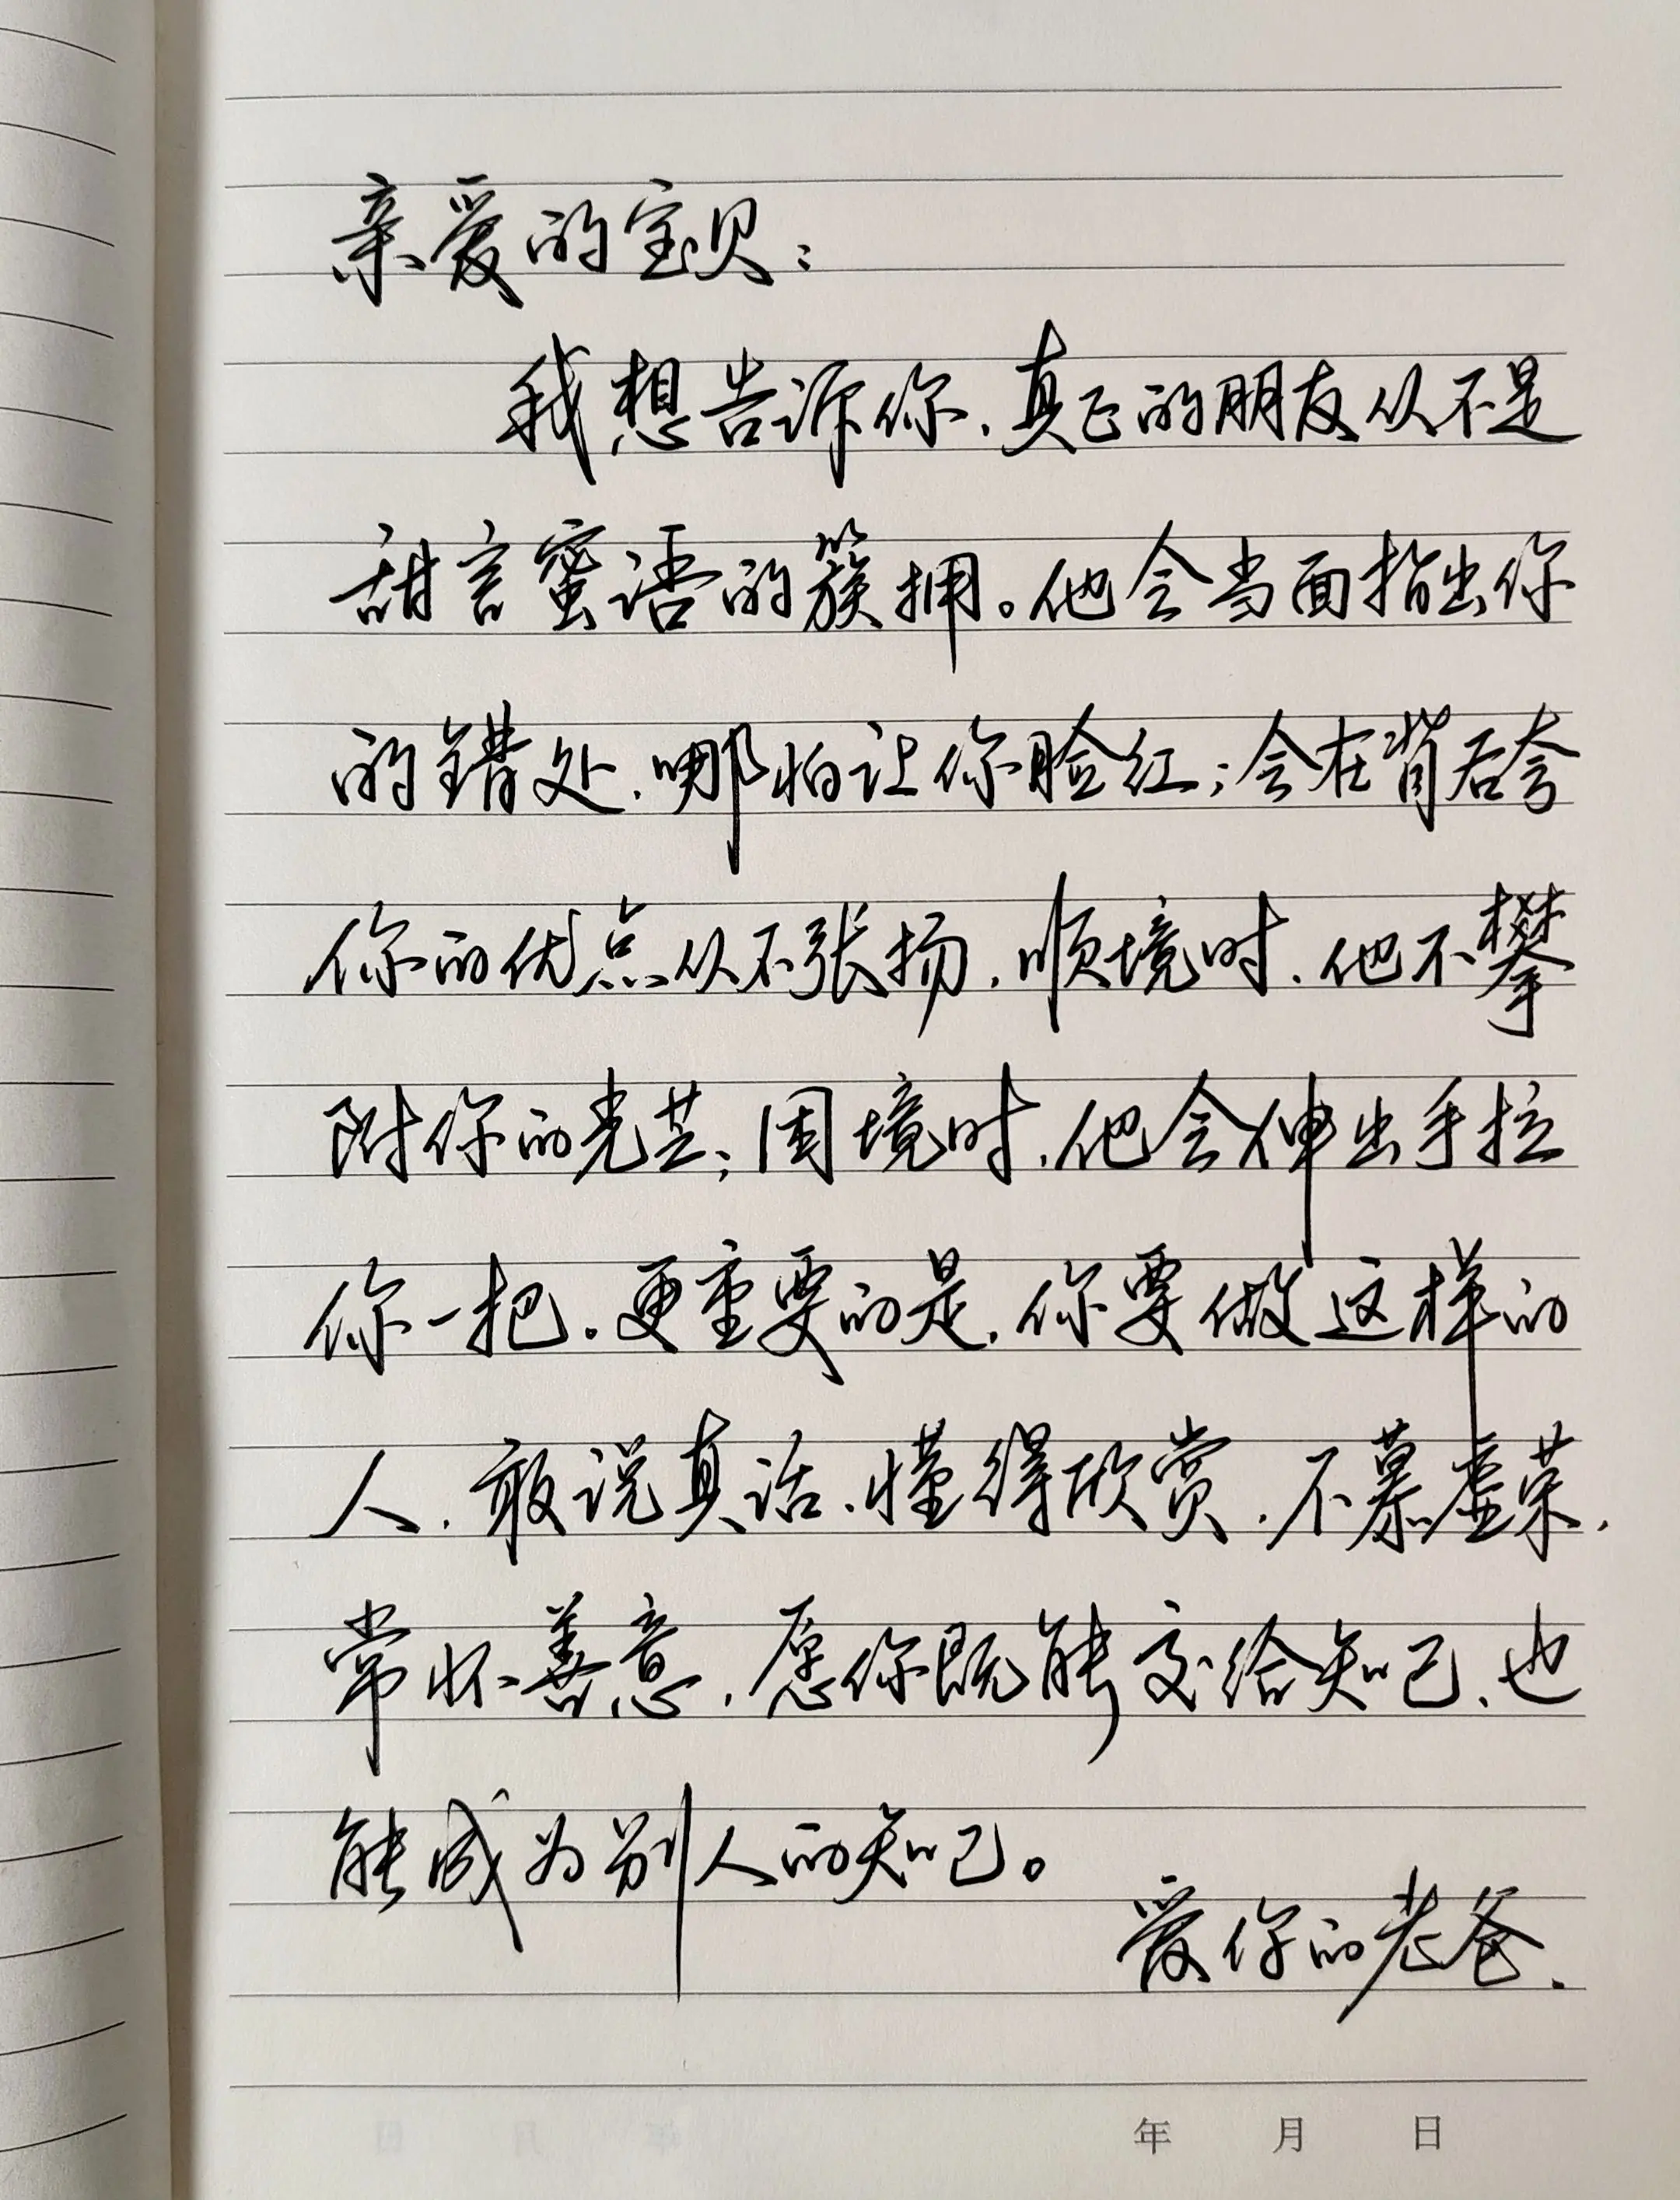 亲爱的宝贝：
我想告诉你，真正的朋友从不是
甜言蜜语的簇拥。他会当面指出你
的错处，哪怕让你脸红；会在背后夸
你的优点从不张扬，顺境时，他不攀
附你的光芒；困境时，他会伸出手拉
你一把。更重要的是，你要做这样的
人，敢说真话，懂得欣赏，不慕虚荣，
常怀善意，愿你既能交给知己，也
能成为别人的知己。
爱你的老爸.
年 月 日